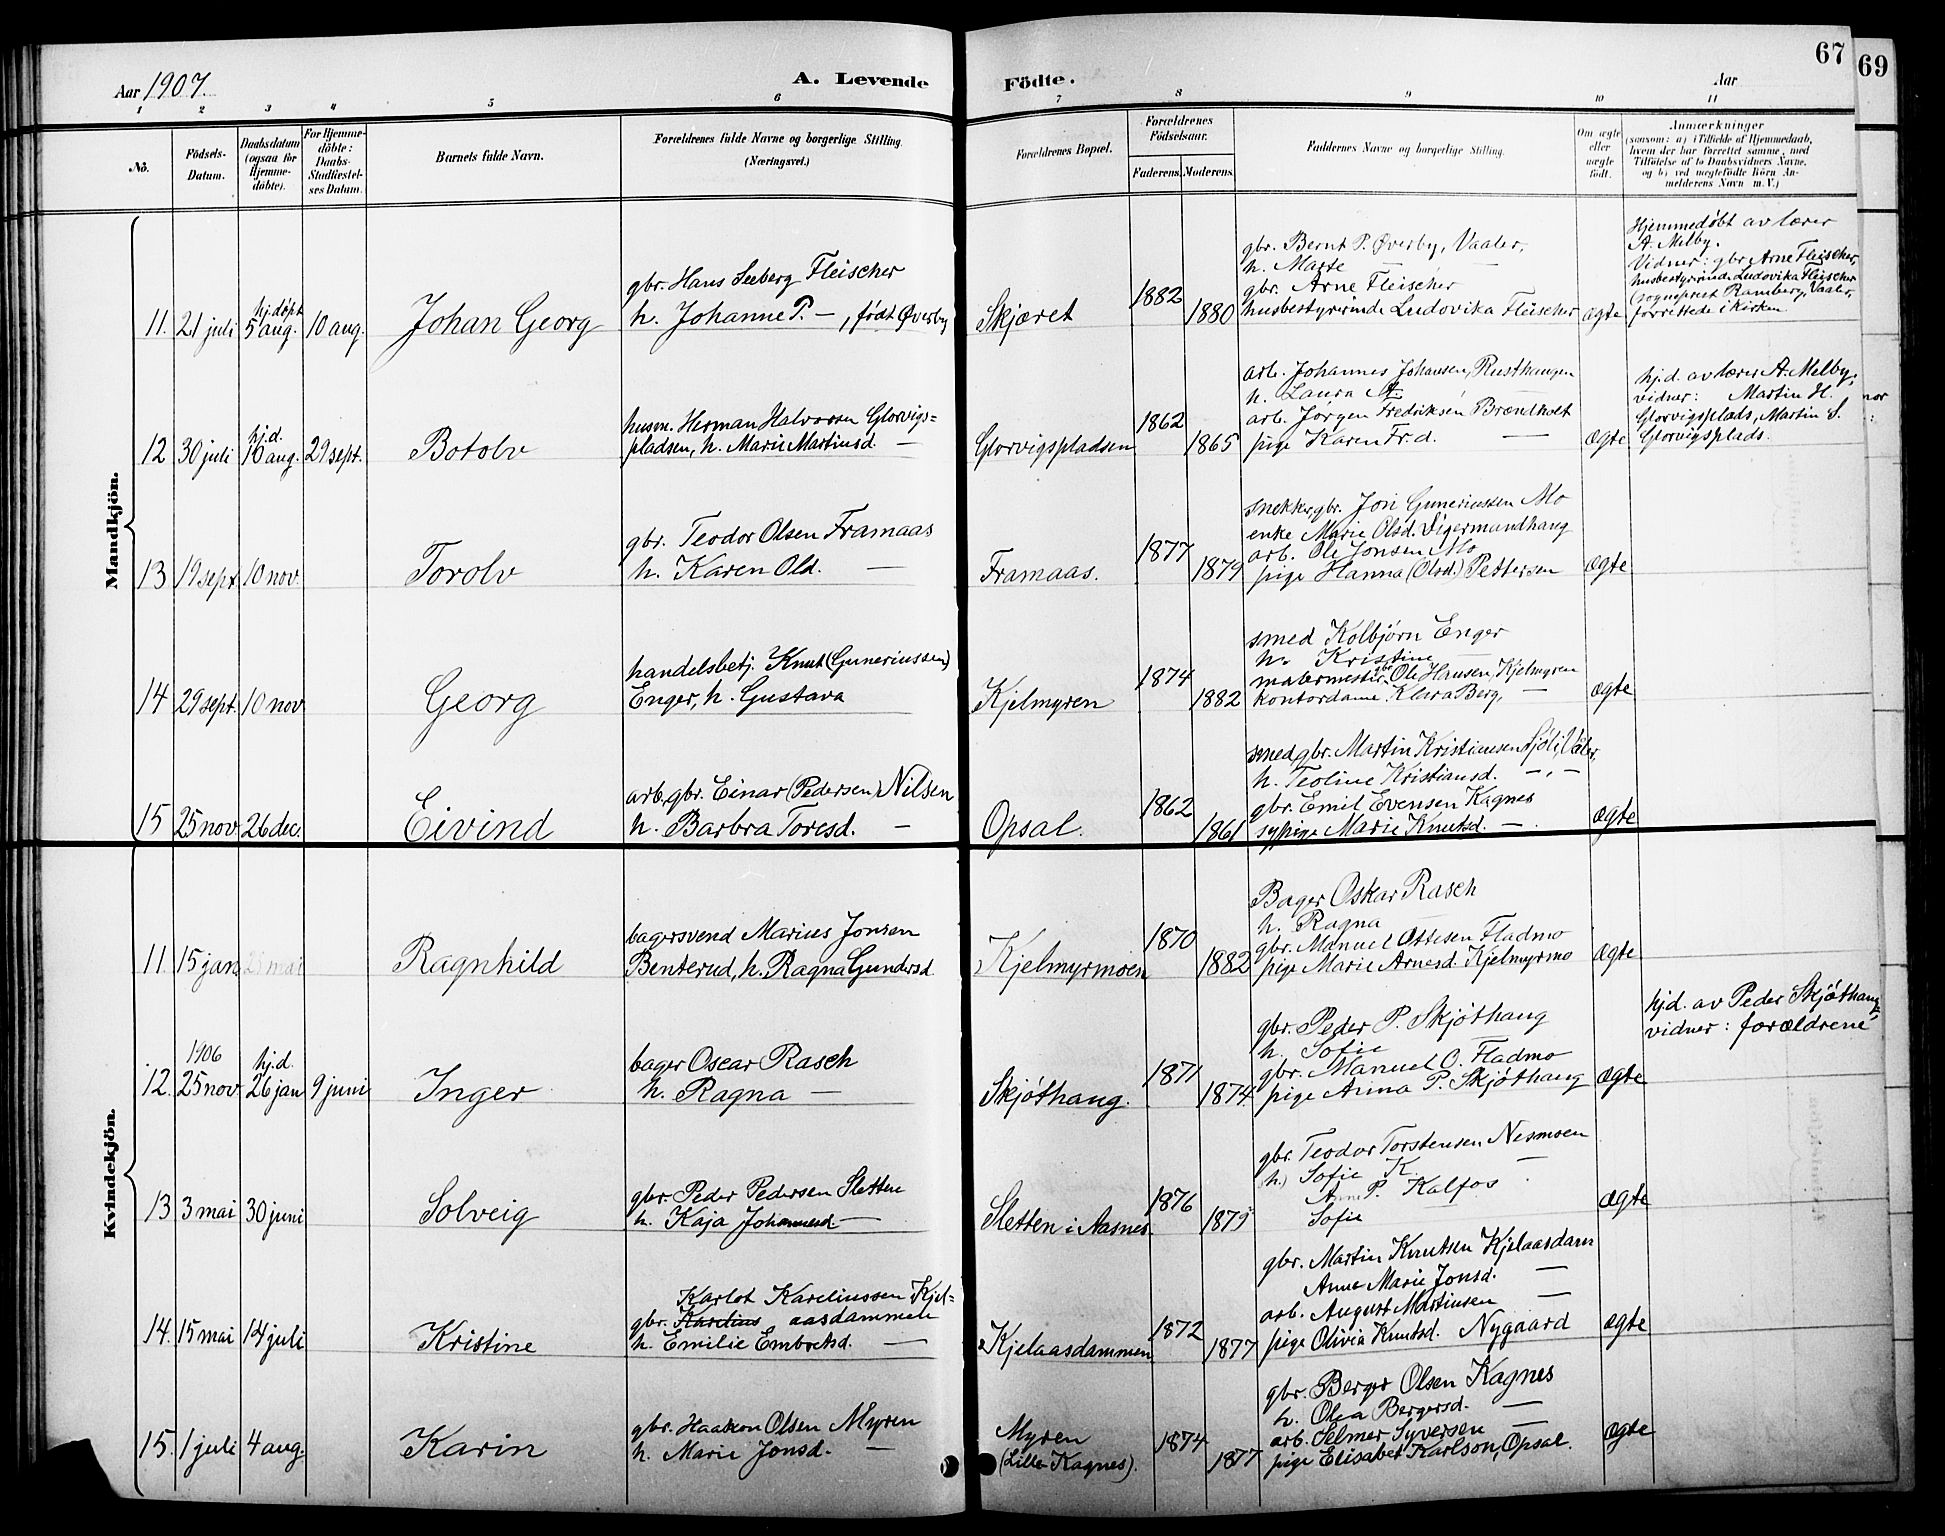 67
69
Aar 1907.
A. Levende Födte.
Aar
1 2 3 4 5 6 7 8 9 10 11
No.
Födsels-Datum.
Daabsdatum (ogsaa for Hjemmedöbte).
For Hjemmedöbte: Daabs-Stadfæstelses Datum.
Barnets fulde Navn.
Forældrenes fulde Navne og borgerlige Stilling (Næringsvei.)
Forældrenes Bopæl.
Forældrenes Födselsaar.
Faderens. Moderens.
Faddernes Navne og borgerlige Stilling.
Om ægte eller uægte födt.
Anmærkninger
(saasom: a) i Tilfælde af Hjemmedaab,
hvem der har forrettet samme, med
Tilföielse af to Daabsvidners Navne,
og b) ved uegtefödte Börn An-
melderens Navn m. V.)
Mandkjön.
11. 21 juli hj.døpt 5 aug. 10 aug. Johan Georg
gbr. Hans Seeberg Fleischer
h. Johanne P. — , født Øverby
Skjæret 1882 1880
gbr. Bernt P. Øverby, Vaaler,
h. Marte —
gbr. Arne Fleischer
husbestyrerinde Ludovika Fleischer
ægte
Hjemmedøbt av lærer
A. Melby.
Vidner: gbr. Arne Fleischer,
husbestyrinde Ludovika Fleischer
(sogneprest Ramberg, Vaaler,
forrettede i kirken.
12 30 juli hj.d. 10 aug. 29 sept. Botolv
husm. Herman Halvorsen Glorvigs=
pladsen, h. Marie Martinsd. —
Glorvigspladsen 1862 1865
arb. Johannes Johansen, Rusthaugen
h. Laura A
arb. Jørgen Fredriksen Brændholt
pige Karen Fr.d. —
ægte
hj.d. av lærer A. Melby,
vidner: Martin H.
Glorvigsplads, Martin S.
Glorvigsplads.
13 19 sept. 10 nov. Torolv
gbr. Teodor Olsen Framaas
h. Karen Old. —
Framaas. 1877 1879
snekker, gbr. Jon Guneriussen Mo
enke Marie Olsd. Digermundhaug
arb. Ole Jonsen Mo
pige Hanna (Olsd.) Pettersen
ægte
14 29 sept. 10 nov Georg
handelsbetj. Knut (Guneriussen)
Enger, h. Gustava
Kjelmyren 1874 1882
smed Kolbjørn Enger
h. Kristine —
malermester gbr. Ole Hansen, Kjelmyren
kontordame Klara Berg, —
ægte
15 25 nov. 26 dec. Eivind
arb., gbr. Einar (Pedersen) Nilsen
h. Barbra Toresd. —
Opsal. 1862 1861
smed, gbr. Martin Kristiansen Sjøli, Våler,
h. Teoline Kristiansd. —„—
gbr. Emil Evensen Kagnes
sypige Marie Knutsd. —
ægte
Kvindekjön.
11. 15 jan. 25 mai Ragnhild
bagersvend Marius Jonsen
Benterud, h. Ragna Gundersd
Kjelmyrmoen 1870 1882
Bager Oskar Rasch
h. Ragna —
gbr. Manuel Ottesen Fladmo
pige Marie Arnesd. Kjelmyrmo
ægte
12. 1906 25 nov. hj.d. 26 jan 9 juni Inger
bager Oscar Rasch
h. Ragna —
Skjøthaug. 1871 1874.
gbr. Peder P. Skjøthaug
h. Sofie —
gbr. Manuel O. Fladmo
pige Anna P. Skjøthaug
ægte
hj.d. av Peder Skjøthaug,
vidner: forældrene
13 3 mai 30 juni Solveig
gbr. Peder Pedersen Sletten
h. Kaja Johannesd. —
Sletten i Aasnes. 1876 1879
gbr. Teodor Torstensen Nesmoen
(h.) Sofie K. —
P. Kalfos
Sofie
ægte
14. 15 mai 14 juli Kristine
Karlot Kareliussen Kjel=
gbr. Karelius aasdammen
h. Emilie Embretsd. —
Kjelaasdammen 1872 1877
gbr. Martin Knutsen Kjelaasdam
Anne Marie Jonsd. —
arb. August Martinsen —
pige Olivia Knutsd. Nygaard
ægte
15. 1 juli 4 aug. Karin
gbr. Haakon Olsen Myren
h. Marie Jonsd. —
Myren
(Lille Kagnes). 1874 1877
gbr. Berger Olsen Kagnes
h. Olea Bergersd. —
arb. Selmer Syversen —
pige Elisabet Karlson, Opsal.
ægte